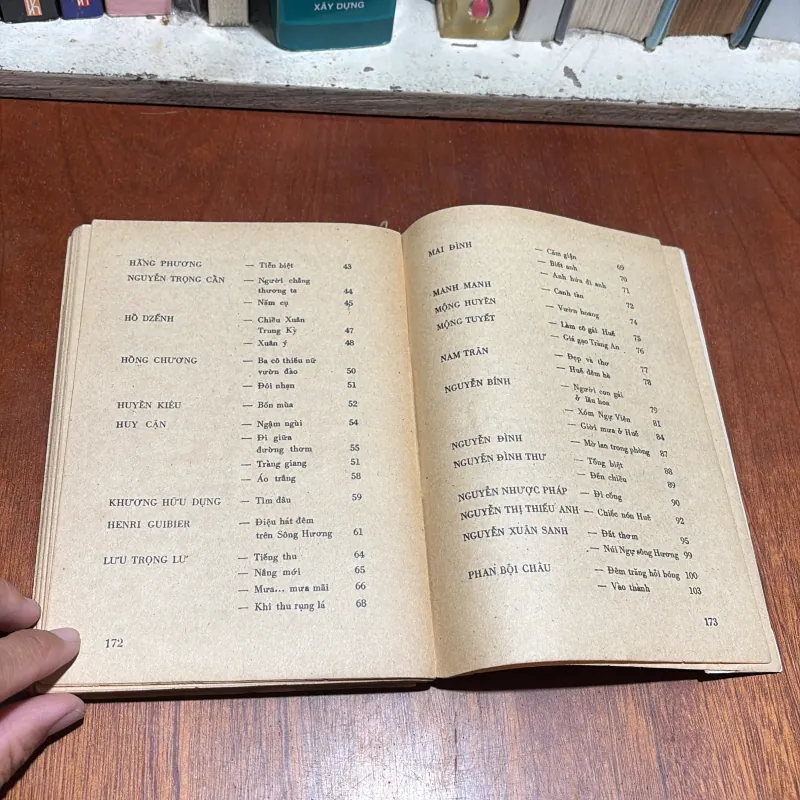 XÂY DỰNG
HẰNG PHƯƠNG — Tiễn biệt 43
NGUYỄN TRỌNG CẦN — Người chẳng
thương ta 44
— Nấm cụ 45
HỒ DZẾNH — Chiều Xuân
Trung Kỳ 47
— Xuân ý 48
HỒNG CHƯƠNG — Ba cô thiếu nữ
vườn đào 50
— Đôi nhạn 51
HUYỀN KIÊU — Bốn mùa 52
HUY CẬN — Ngậm ngùi 54
— Đi giữa
đường thơm 55
— Tràng giang 51
— Áo trắng 58
KHƯƠNG HỮU DỤNG — Tìm đâu 59
HENRI GUIBIER — Điệu hát đêm
trên Sông Hương 61
LƯU TRỌNG LƯ — Tiếng thu 64
— Nắng mới 65
— Mưa... mưa mãi 66
— Khi thu rụng lá 68
172
MAI ĐÌNH — Căm giận 69
— Biết anh 70
— Anh hứa đi anh 71
MANH MANH — Canh tàn 72
MỘNG HUYỀN — Vườn hoang 74
MỘNG TUYẾT — Làm cô gái Huế 75
— Giã gạo Tràng An 76
NAM TRÂN — Đẹp và thơ 77
— Huế đêm hè 78
NGUYỄN BÍNH — Người con gái
ở lầu hoa 79
— Xóm Ngự Viên 81
— Giời mưa ở Huế 84
NGUYỄN ĐÌNH — Mờ lan trong phòng 87
NGUYỄN ĐÌNH THƯ — Tống biệt 88
— Đến chiều 89
NGUYỄN NHƯỢC PHÁP — Đi cống 90
NGUYỄN THỊ THIẾU ANH — Chiếc nón Huế 92
NGUYỄN XUÂN SANH — Đất thơm 95
— Núi Ngự sông Hương 99
PHAN BỘI CHÂU — Đêm trăng hỏi bóng 100
— Vào thành 103
173